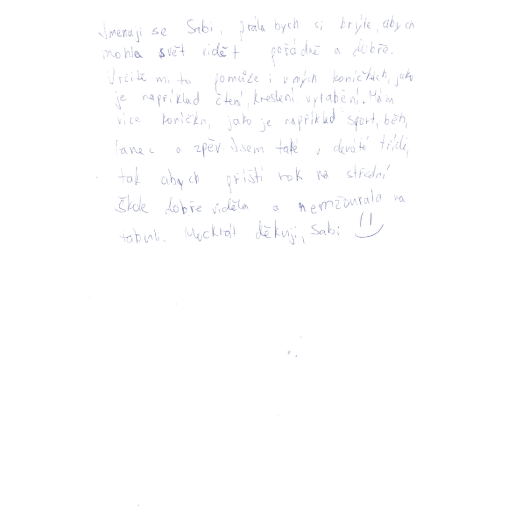 Jmenuji se Sabi, přála bych si brýle, abych
mohla svět vidět pořádně a dobře.
Určitě mi to pomůže i v mých koníčkách, jako
je například čtení, kreslení, vyrábění. Mám
více koníčků, jako je například sport, běh,
tanec a zpěv. Jsem také v deváté třídě,
tak abych příští rok na střední
škole dobře viděla a nemžourala na
tabuli. Mockrát děkuji, Sabi